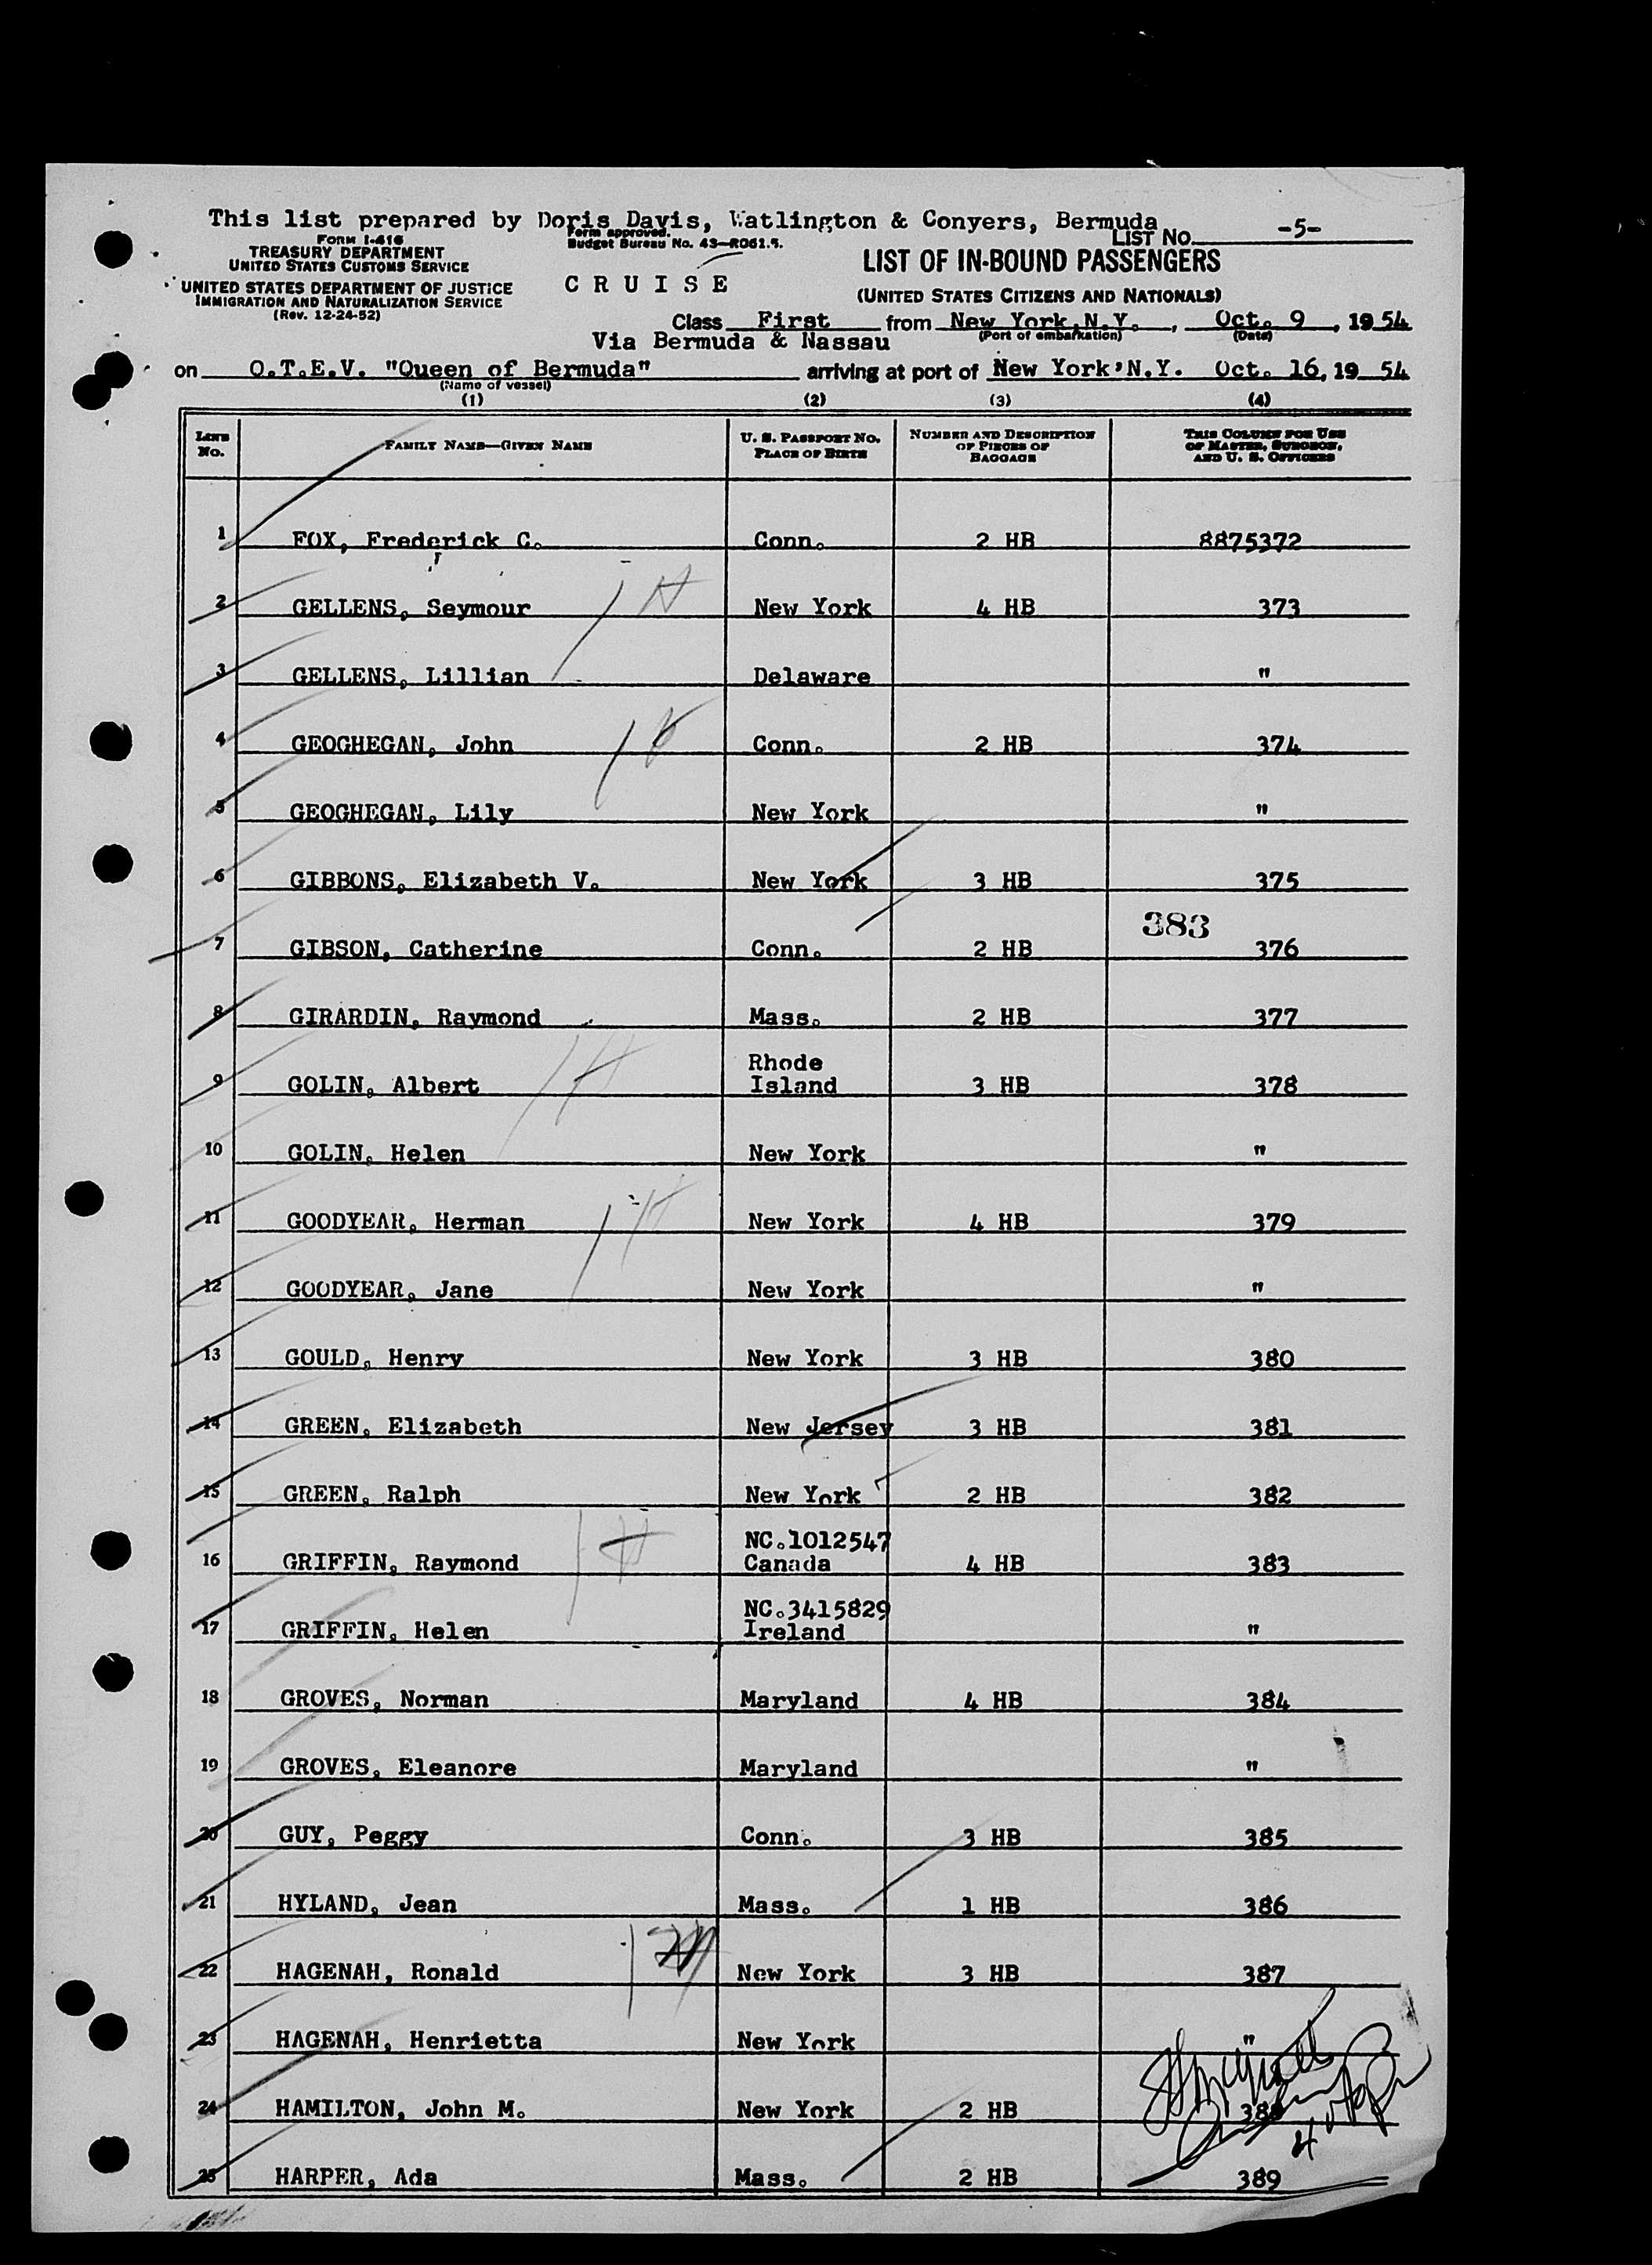 This list prepared by Doris Davis, Watlington & Conyers, Bermuda
LIST NO. -5-
FORM I-416
TREASURY DEPARTMENT
UNITED STATES CUSTOMS SERVICE
UNITED STATES DEPARTMENT OF JUSTICE
IMMIGRATION AND NATURALIZATION SERVICE
(Rev. 12-24-52)
Form approved.
Budget Bureau No. 43—R061.5.
C R U I S E
LIST OF IN-BOUND PASSENGERS
(UNITED STATES CITIZENS AND NATIONALS)
Class First from New York, N.Y. , Oct. 9 , 19 54
(Port of embarkation) (Date)
Via Bermuda & Nassau
on Q.T.E.V. "Queen of Bermuda" arriving at port of New York, N.Y. Oct. 16, 19 54
(Name of vessel)
(1) (2) (3) (4)
LINE No. FAMILY NAME—GIVEN NAME U. S. PASSPORT NO. PLACE OF BIRTH NUMBER AND DESCRIPTION OF PIECES OF BAGGAGE THIS COLUMN FOR USE OF MASTER, SURGEON, AND U. S. OFFICERS
1 FOX, Frederick C. Conn. 2 HB 8875372
2 GELLENS, Seymour New York 4 HB 373
3 GELLENS, Lillian Delaware "
4 GEOGHEGAN, John Conn. 2 HB 374
5 GEOGHEGAN, Lily New York "
6 GIBBONS, Elizabeth V. New York 3 HB 375
383
7 GIBSON, Catherine Conn. 2 HB 376
8 GIRARDIN, Raymond Mass. 2 HB 377
Rhode
9 GOLIN, Albert Island 3 HB 378
10 GOLIN, Helen New York "
11 GOODYEAR, Herman New York 4 HB 379
12 GOODYEAR, Jane New York "
13 GOULD, Henry New York 3 HB 380
14 GREEN, Elizabeth New Jersey 3 HB 381
15 GREEN, Ralph New York 2 HB 382
NC.1012547
16 GRIFFIN, Raymond Canada 4 HB 383
NC.3415829
17 GRIFFIN, Helen Ireland "
18 GROVES, Norman Maryland 4 HB 384
19 GROVES, Eleanore Maryland "
20 GUY, Peggy Conn. 3 HB 385
21 HYLAND, Jean Mass. 1 HB 386
22 HAGENAH, Ronald New York 3 HB 387
23 HAGENAH, Henrietta New York "
24 HAMILTON, John M. New York 2 HB 388
25 HARPER, Ada Mass. 2 HB 389